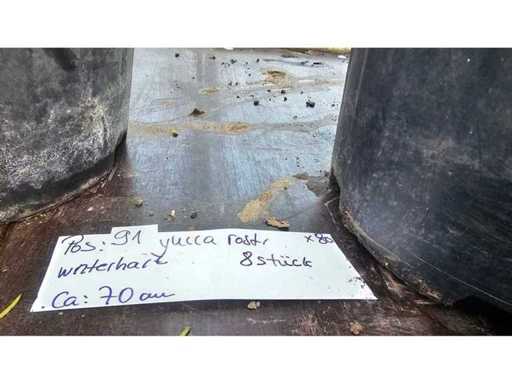 Pos: 91 yucca rostr. x80
winterhart 8 stück
Ca: 70 cm